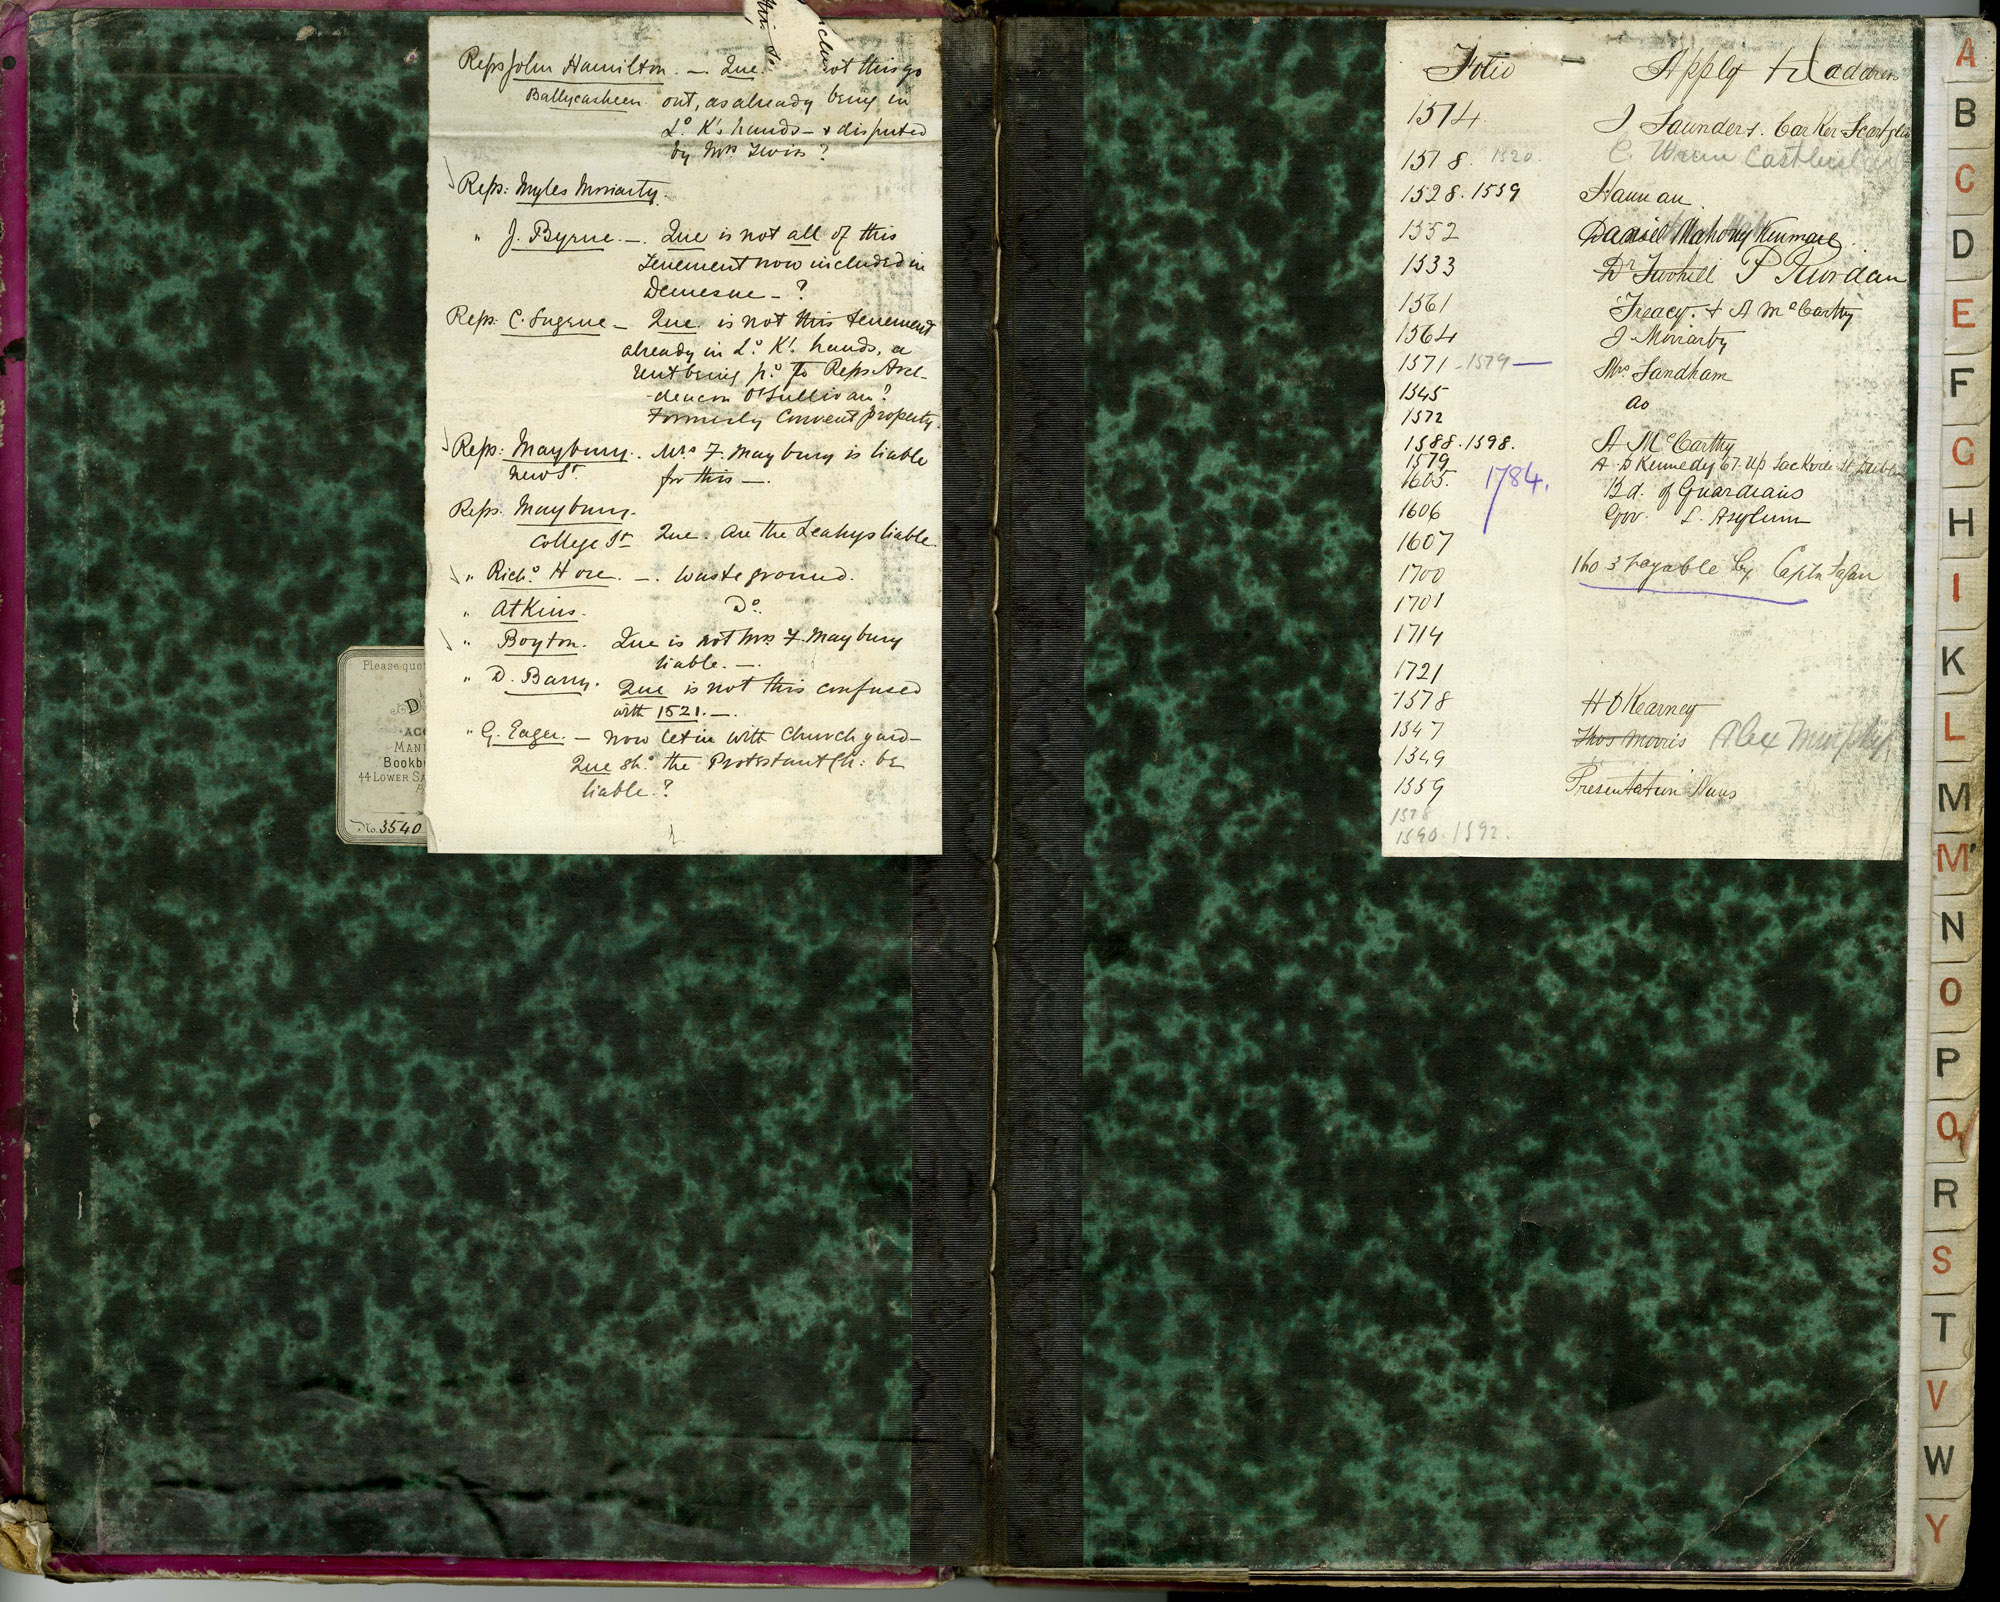 Reps John Hamilton. — Que. not this go
Ballycasheen out, as already being in
Ld. K's hands — & disputed
by Mrs Lewis?
Reps: Myles Moriarty.
" J. Byrne. —. Que is not all of this
Tenement now included in
Demesne — ?
Reps. C. Eugene — Que. is not this tenement
already in Ld. K's. hands, a
rent being pd. to Reps Arch-
-deacon O'Sullivan?
Formerly Convent property.
Reps: Maybury. Mrs F. Maybury is liable
New St. for this —.
Reps. Maybury.
College St Que. are the Leahys liable.
" Richd. Hore. —. Waste ground.
" Atkins. Do.
" Boyton. Que is not Mrs F. Maybury
liable. —.
" D. Barry. Que is not this confused
with 1521. —.
" G. Eager. — now let in with Church yard —
Que shd. the Protestant Ch: be
liable.?
Please quo
D
ACC
MAN
BOOKB
44 LOWER SA
No. 3540
Folio — Apply to address
1514. J Saunders. Car Ker Scartglen
1518. 1520. C
1528. 1539 Hannan.
1552 Daniel Mahony Kenmare.
1533 Dr Tuohill P Riordan
1561 Treacy. & A McCarthy
1564 J. Moriarty
1571 - 1579 — Mrs Sandham
1545 do
1572
1588. 1598. A McCarthy
1579 A. D Kennedy 67. Up Sackville St Dublin
1605. 1784. Bd. of Guardians
1606 Gov. L. Asylum
1607
1700 payable by Captn Fagan
1701
1714
1721
1578 H O Kearney
1547 Thos Morris Alex Murphy
1549
1559 Presentation Nuns
1578
1590. 1592.
A
B
C
D
E
F
G
H
I
K
L
M
Mc
N
O
P
Q
R
S
T
V
W
Y